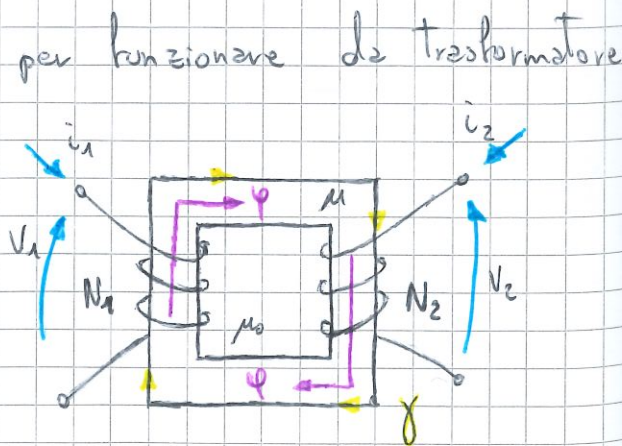 per funzionare da trasformatore
i₁
i₂
φ
μ
V₁
N₁
N₂
V₂
μ₀
φ
γ